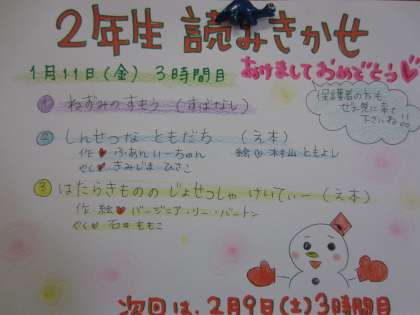 2年生 読みきかせ
1月11日(金) 3時間目
あけましておめでとう
保護者の方も
ぜひ見に来て
下さいね!!
① ねずみのすもう (すばなし)
② しんせつな ともだち (え本)
作 ふぁん・いーちゅん 絵 村山 ともよし
やく きみじま ひさこ
③ はたらきものの じょせつしゃ けいてぃー (え本)
作・絵 バージニア・リー・バートン
やく 石井 ももこ
次回は、2月9日(土)3時間目